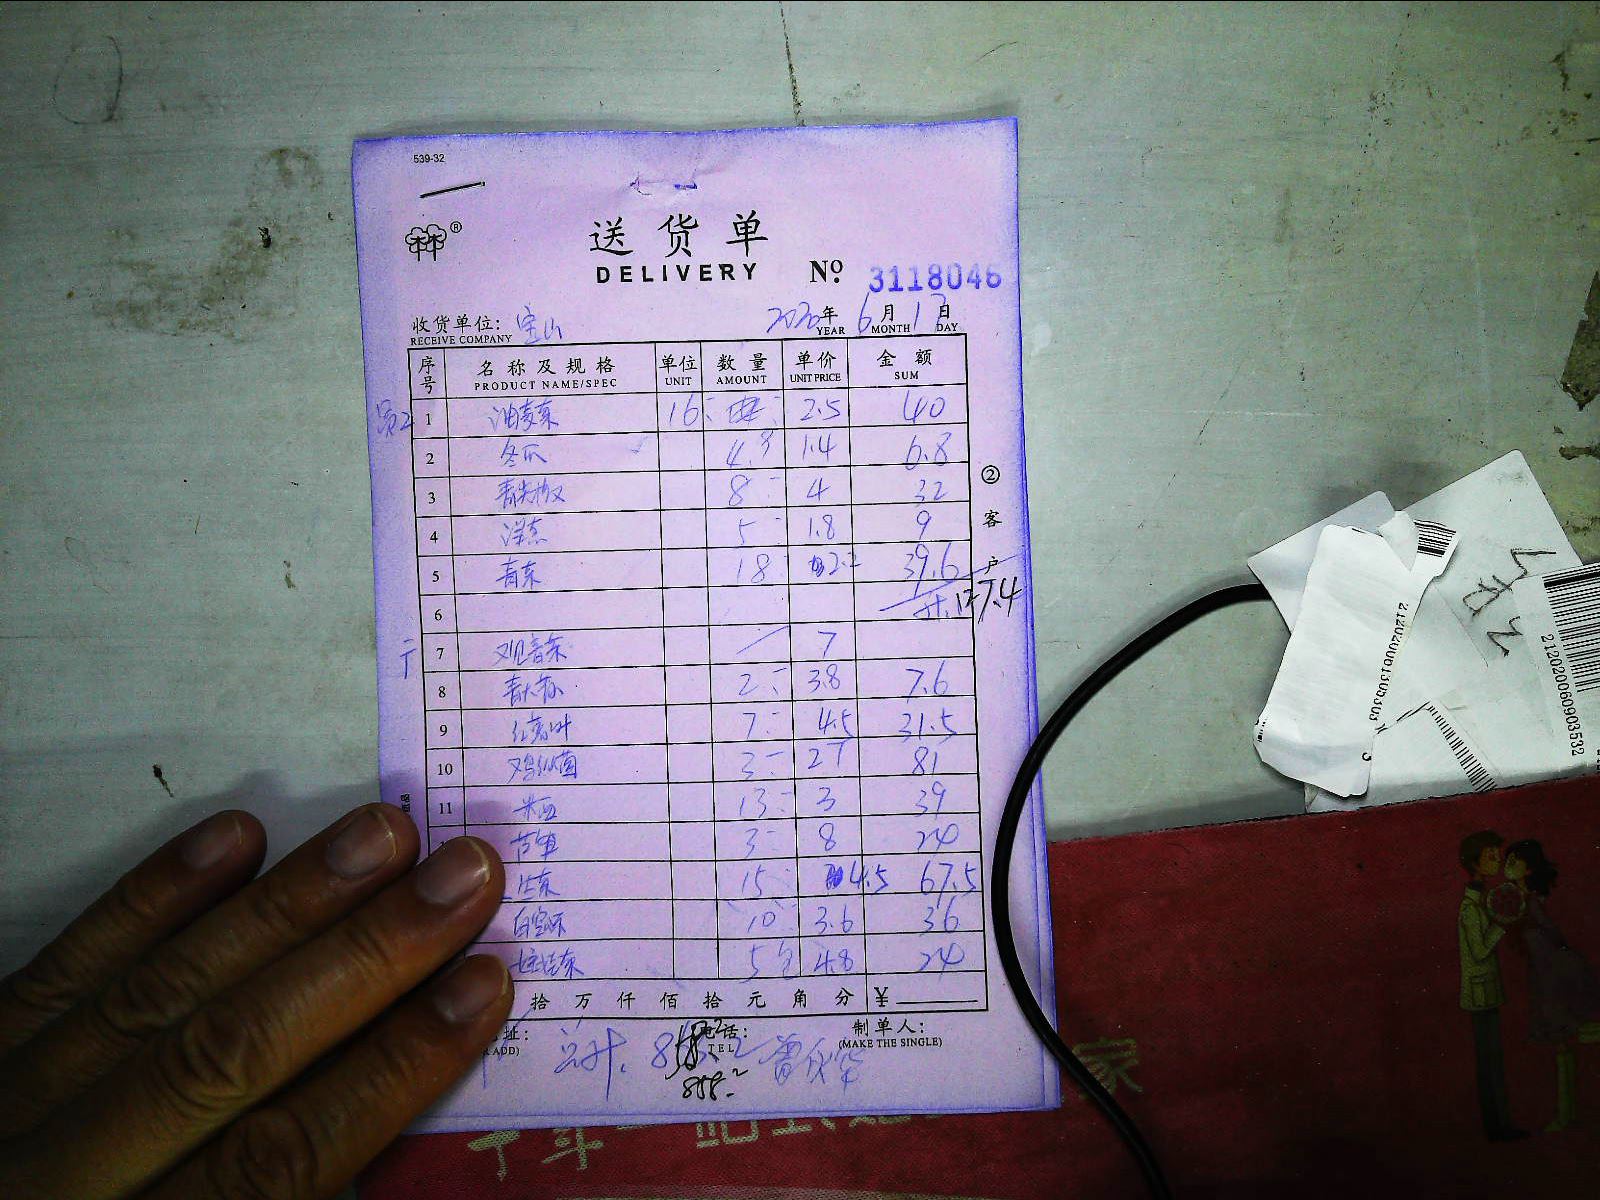 539-32
®
送货单
DELIVERY № 3118046
收货单位: 宝山 2020年 6月 17日
RECEIVE COMPANY YEAR MONTH DAY
序号 名称及规格 单位 数量 单价 金额
PRODUCT NAME/SPEC UNIT AMOUNT UNIT PRICE SUM
1 油麦菜 16 2.5 40
2 冬瓜 4.8 1.4 6.8
3 青尖椒 8 4 32
4 洋葱 5 1.8 9
5 青菜 18 2.2 39.6
6 计.127.4
7 观音菜 7
8 2 3.8 7.6
9 7 4.5 31.5
10 鸡枞菌 3 27 81
11 13 3 39
3 8 24
生菜 15 4.5 67.5
10 3.6 36
娃娃菜 5 4.8 24
拾万仟佰拾元角分 ¥
址: 电话: 制单人:
ADD) TEL (MAKE THE SINGLE)
总计.
858.2
②客户
212020061305303
212020060903532
家